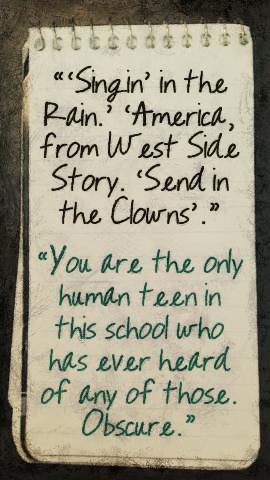 “‘Singin’ in the
Rain.’ ‘America,
from West Side
Story. ‘Send in
the Clowns’.”
“You are the only
human teen in
this school who
has ever heard
of any of those.
Obscure.”